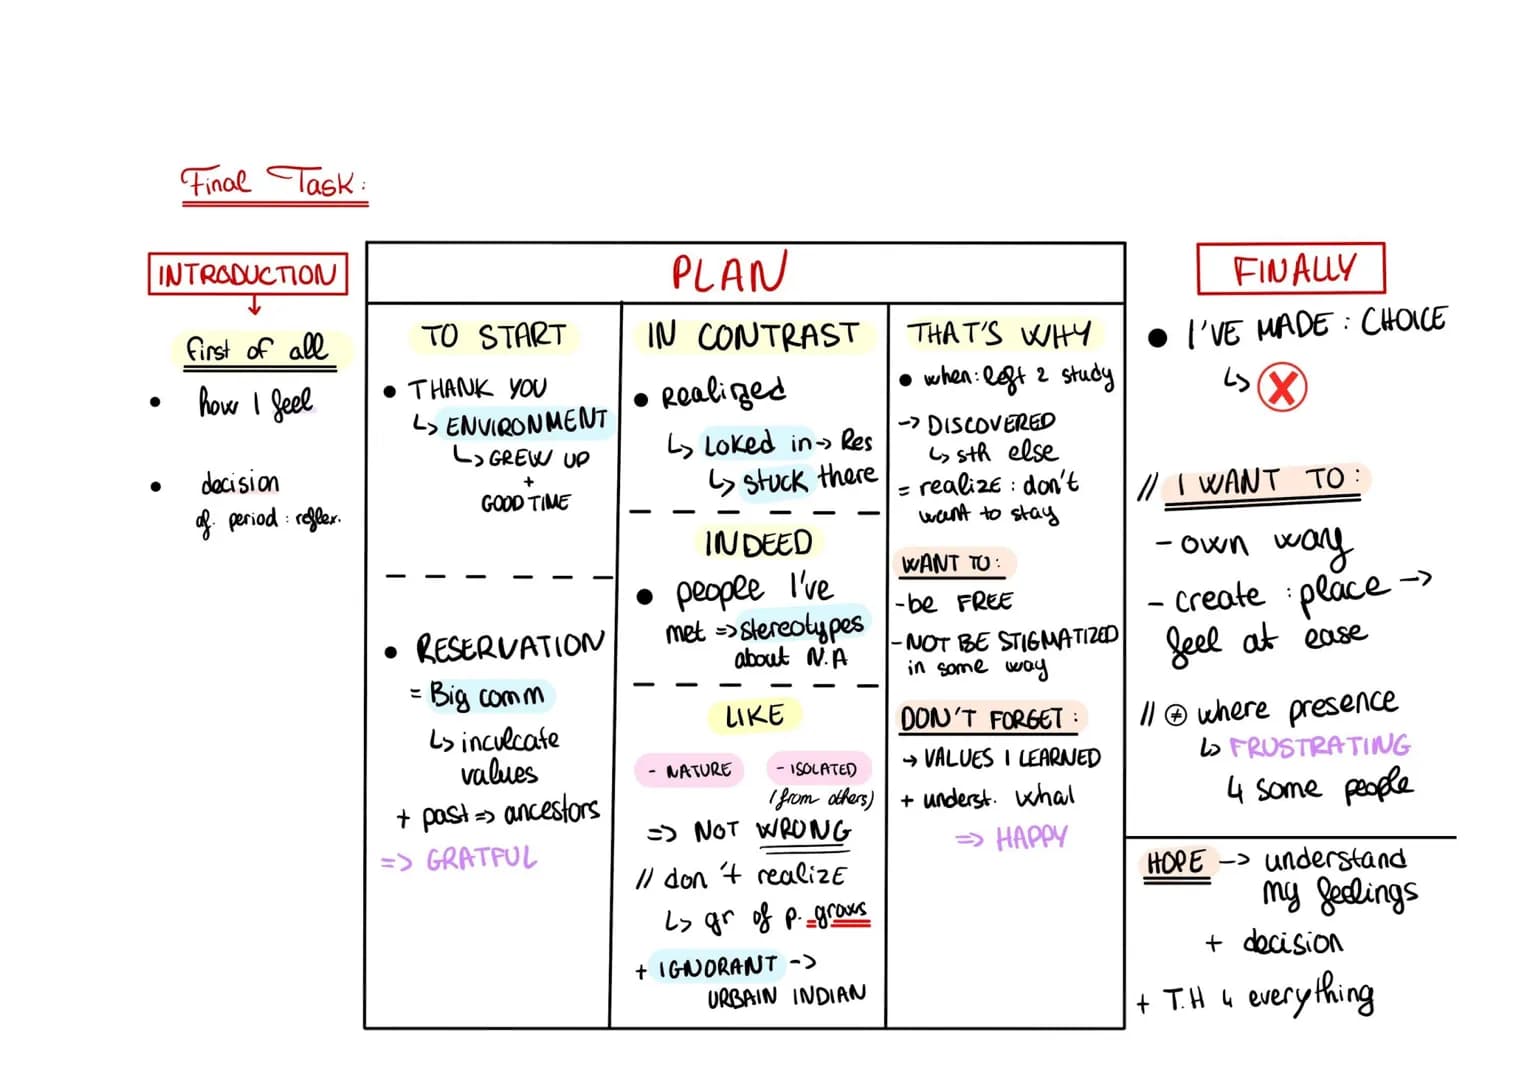 Final Task:
INTRODUCTION
↓
first of all
• how I feel
• decision
of. period : reflex.
PLAN
TO START
• THANK YOU
↳ ENVIRONMENT
↳ GREW UP
+
GOOD TIME
• RESERVATION
= Big comm
↳ inculcate
values
+ past => ancestors
=> GRATFUL
IN CONTRAST
• Realized
↳ Loked in -> Res
↳ stuck there
INDEED
• people I've
met => stereotypes
about N.A
LIKE
- NATURE - ISOLATED
(from others)
=> NOT WRONG
// don't realize
↳ gr of p. grows
+ IGNORANT ->
URBAIN INDIAN
THAT'S WHY
• when: left 2 study
-> DISCOVERED
↳ sth else
= realize : don't
want to stay
WANT TO:
- be FREE
- NOT BE STIGMATIZED
in some way
DON'T FORGET :
→ VALUES I LEARNED
+ underst. what
=> HAPPY
FINALLY
• I'VE MADE : CHOICE
↳ X
// I WANT TO :
- own way
- create : place ->
feel at ease
// ≠ where presence
↳ FRUSTRATING
4 some people
HOPE -> understand
my feelings
+ decision
+ T.H 4 everything